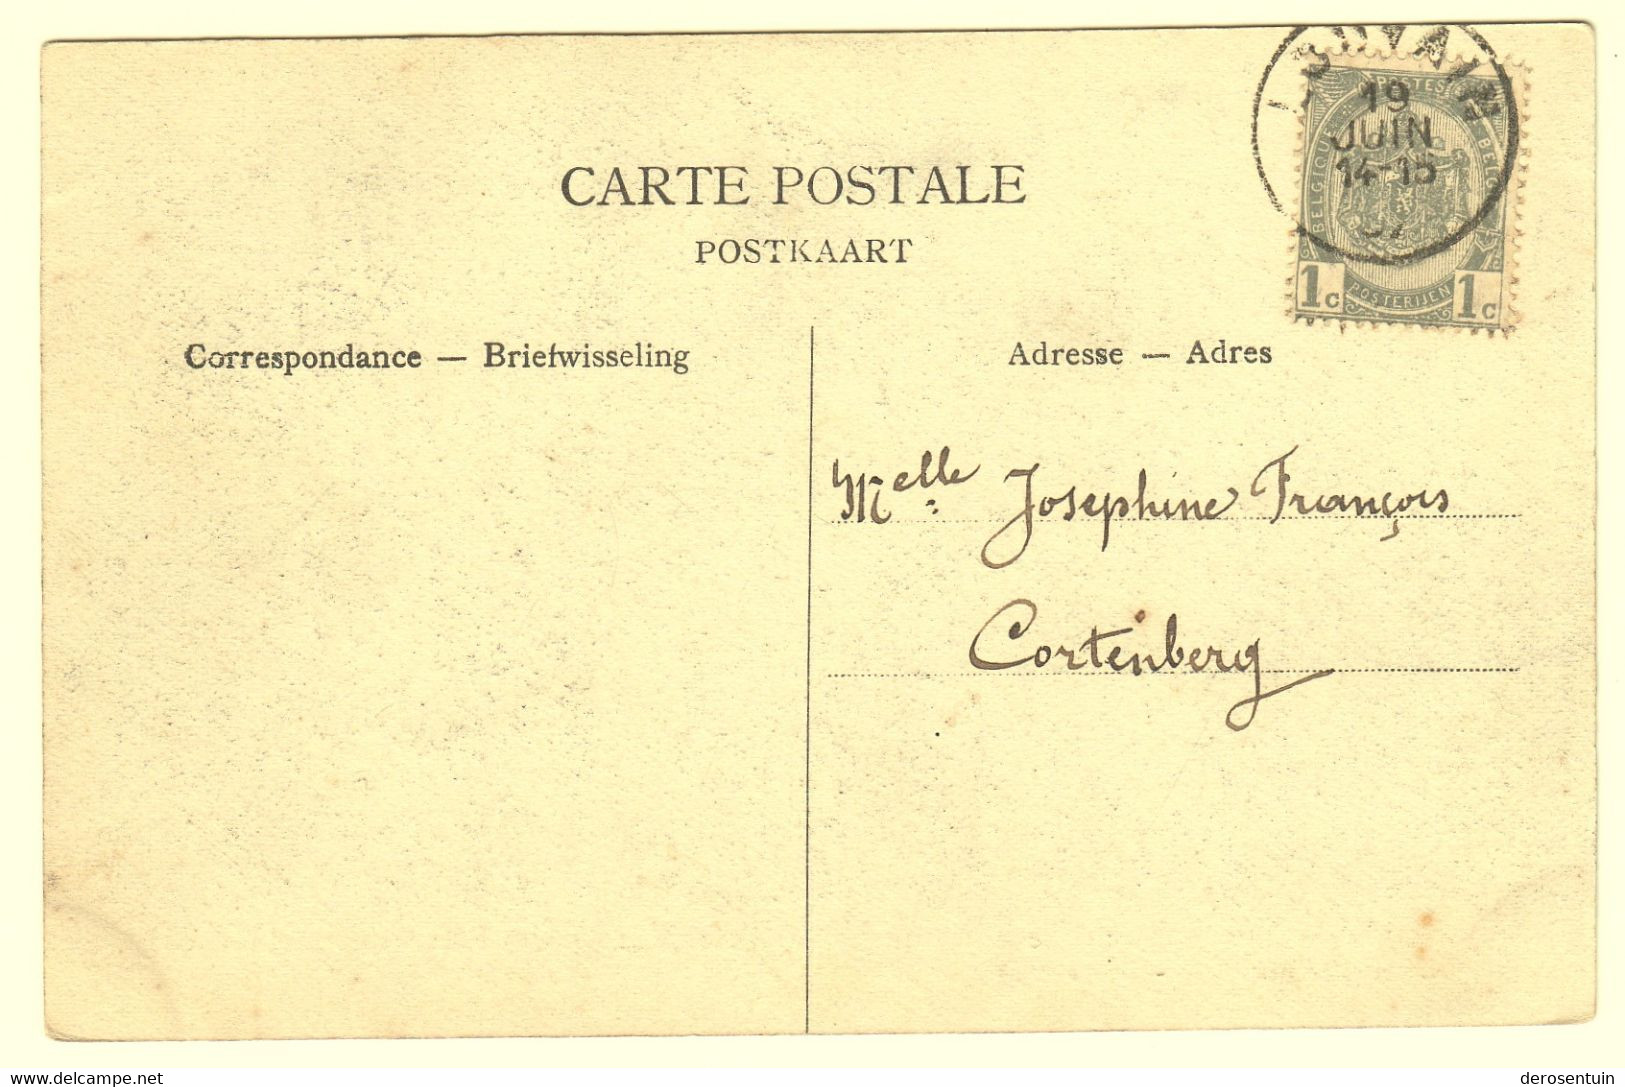 19
JUIN
14-15
07
POSTES
BELGIQUE
1c POSTERIJEN 1c
CARTE POSTALE
POSTKAART
Correspondance — Briefwisseling
Adresse — Adres
Melle Josephine François
Cortenberg
www.delcampe.net
derosentuin